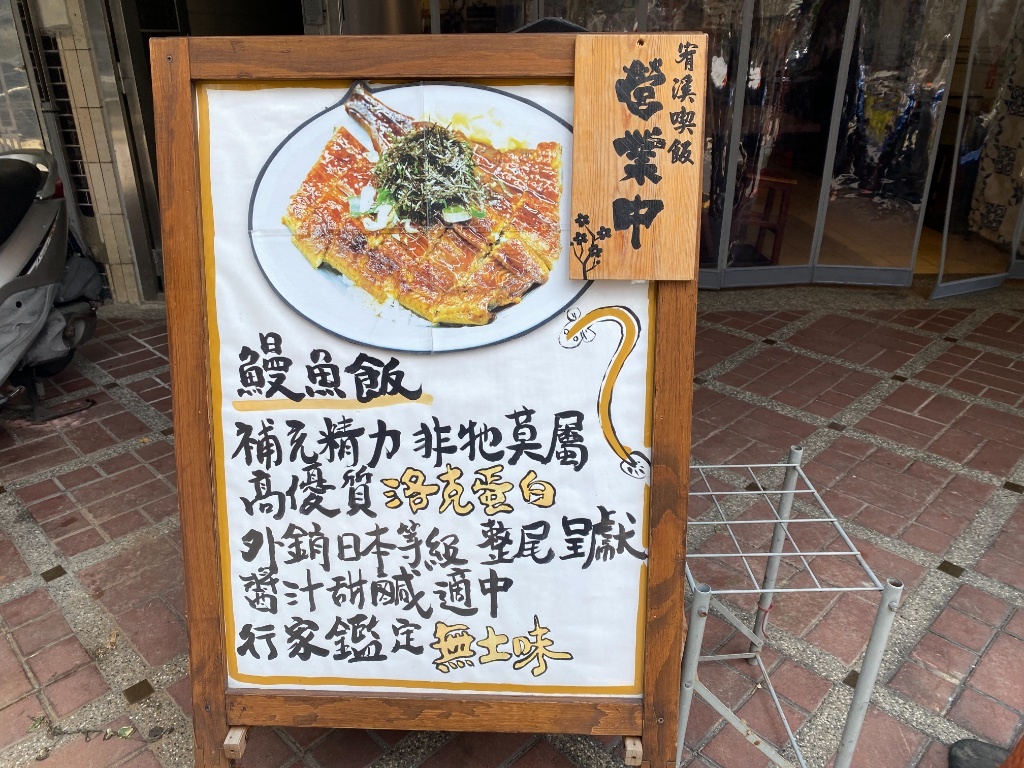 宥溪喫飯
營業中
鰻魚飯
補充精力 非牠莫屬
高優質洛克蛋白
外銷日本等級 整尾呈獻
醬汁甜鹹適中
行家鑑定無土味